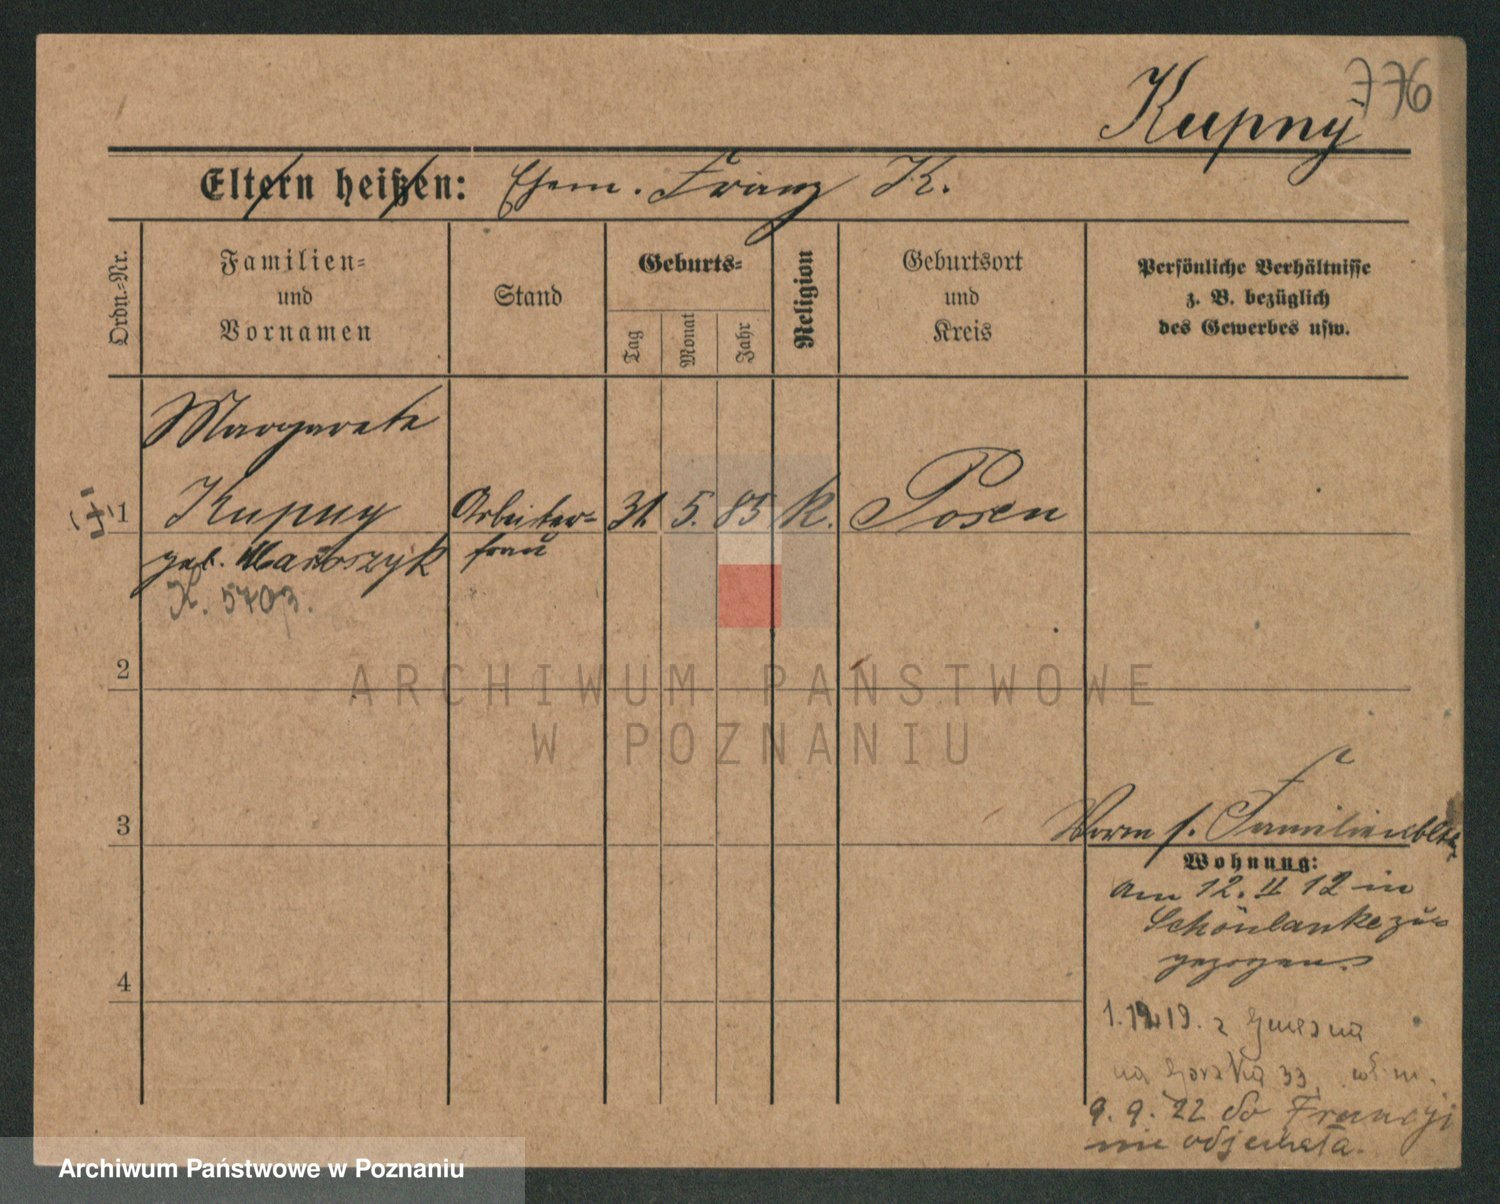 776
Kupny
Eltern heißen: Ehem. Franz K.
Ordn.-Nr.
Familien-
und
Vornamen
Stand
Geburts-
Tag
Monat
Jahr
Religion
Geburtsort
und
Kreis
Persönliche Verhältnisse
z. B. bezüglich
des Gewerbes usw.
Margarete
1 Kupny Arbeiter- 31. 5. 85 K. Posen
geb. frau
K. 5703.
2
ARCHIWUM PAŃSTWOWE
W POZNANIU
3
Vorm s. Familienbltt
Wohnung:
Am 12. II 12 in
Schönlanke zu-
gezogen.
4
1.12.19. z Gniezna
na Gorska 33,
9. 9. 22 do Francji
nie odjechała.
Archiwum Państwowe w Poznaniu